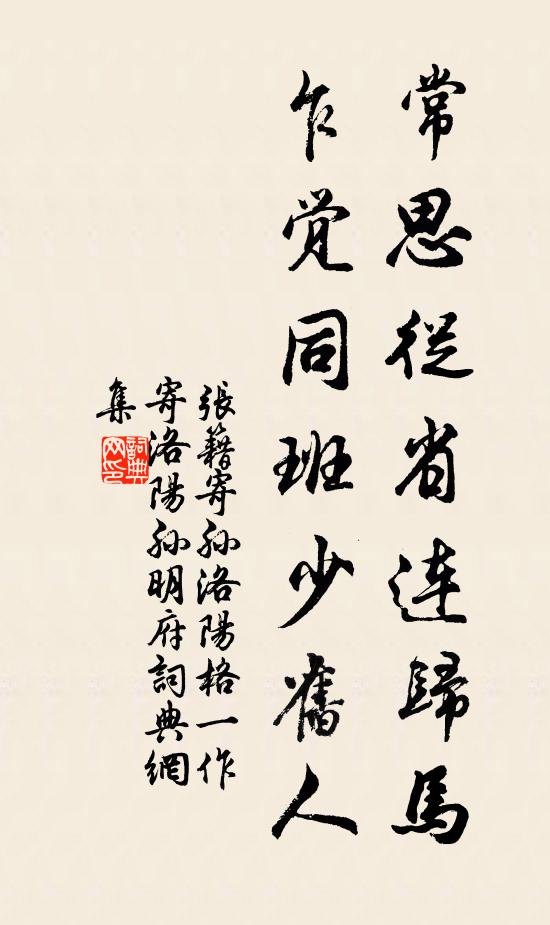 常思從省連歸馬
乍觉同班少舊人
張籍寄孙洛陽格一作
寄洛陽孙明府詞典網
集
詞典
网印